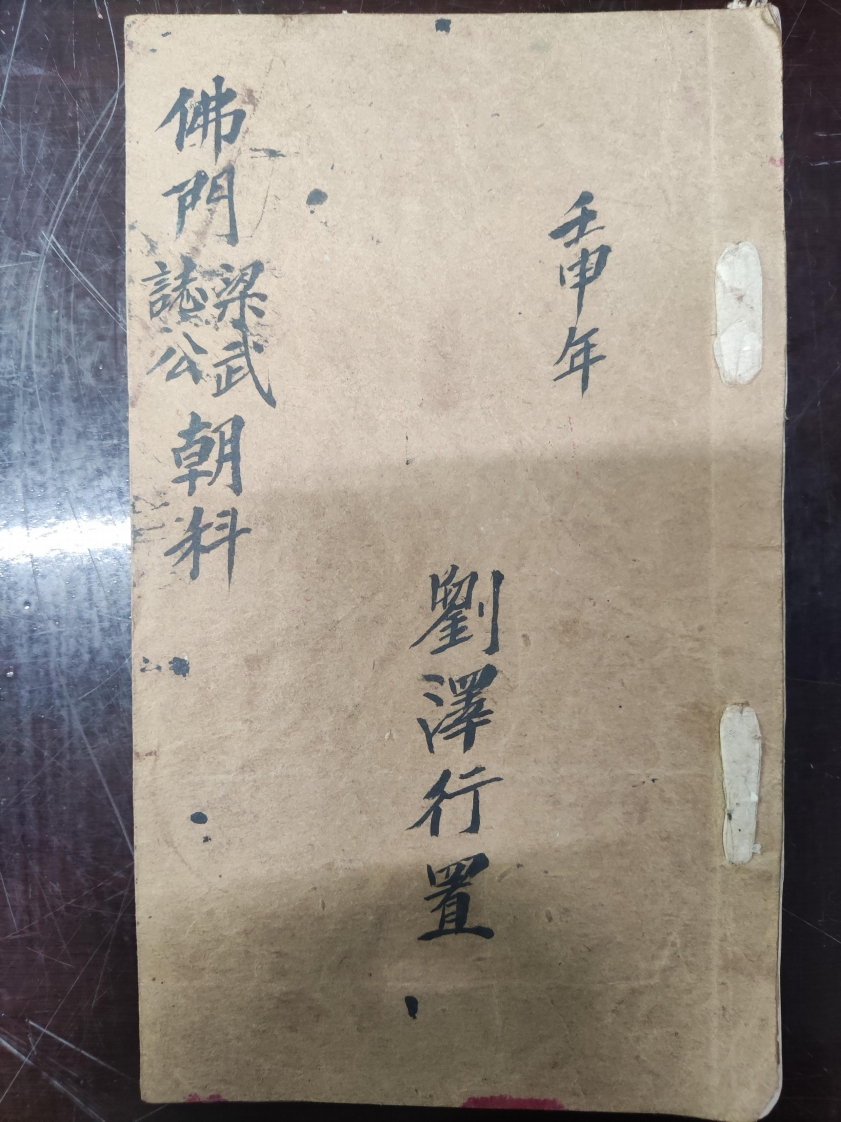 壬申年
劉澤行置
佛門梁武誌公朝科